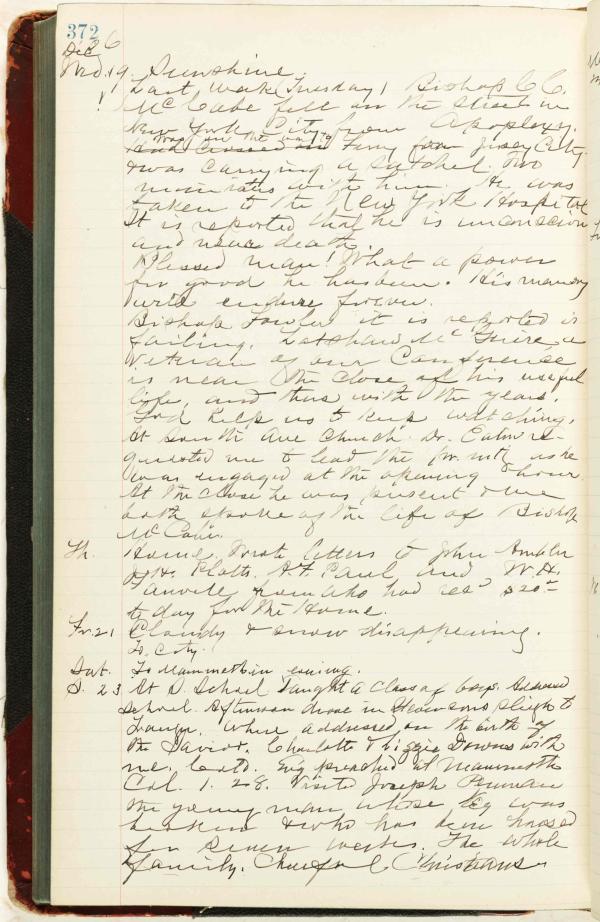 372
Dec 26
Wed. 19 Sunshine.
Last week (Tuesday) Bishop C.C.
McCabe fell on the street in
New York City from Apoplexy.
was on the way to
had crossed on Ferry from Jersey City
& was carrying a satchel. Two
ministers with him. He was
taken to the New York Hospital
It is reported that he is unconscious
and near death.
Blessed man! What a power
for good he has been. His memory
will endure forever.
Bishop Fowler it is reported is
failing. McGuire a
Veteran of our Conference
is near the close of his useful
life, and thus with the years.
God keep us to keep watching.
At Smith Ave Church. Dr. Eaton re-
quested me to lead the pr. mtg as he
was engaged at the opening hour.
At the close he was present & we
both spoke of the life of Bishop
McCabe.
Th. Home. Wrote letters to John
J.H. Platts. A.F. Paul and W.H.
from who had recd $20.00
to day for the Home.
Fr. 21 Cloudy & snow disappearing.
To City.
Sat. To Mammoth in evening.
S. 23 At S. School taught a class of boys. Addressed
school. Afternoon drove in sleigh to
where addressed on the birth of
the Savior. Charlotte & Lizzie Downs with
me. Cold. Ev'g preached at Mammoth
Col. 1. 28. Visited Joseph
the young man whose leg was
broken & who has been housed
for seven weeks. The whole
family. Cheerful Christians